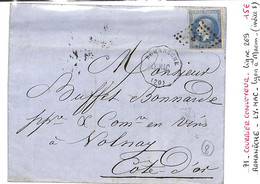 Monsieur
Buffet Bonnarde
ppre & Comm en vins
à Volnay
Côte d'or
ROMANECHE
(70)
8
71 - COURRIER CONVOYEUR. Ligne 269 15€
ROMANÈCHE - LY. MAC - Lyon à Macon. (indice 8)